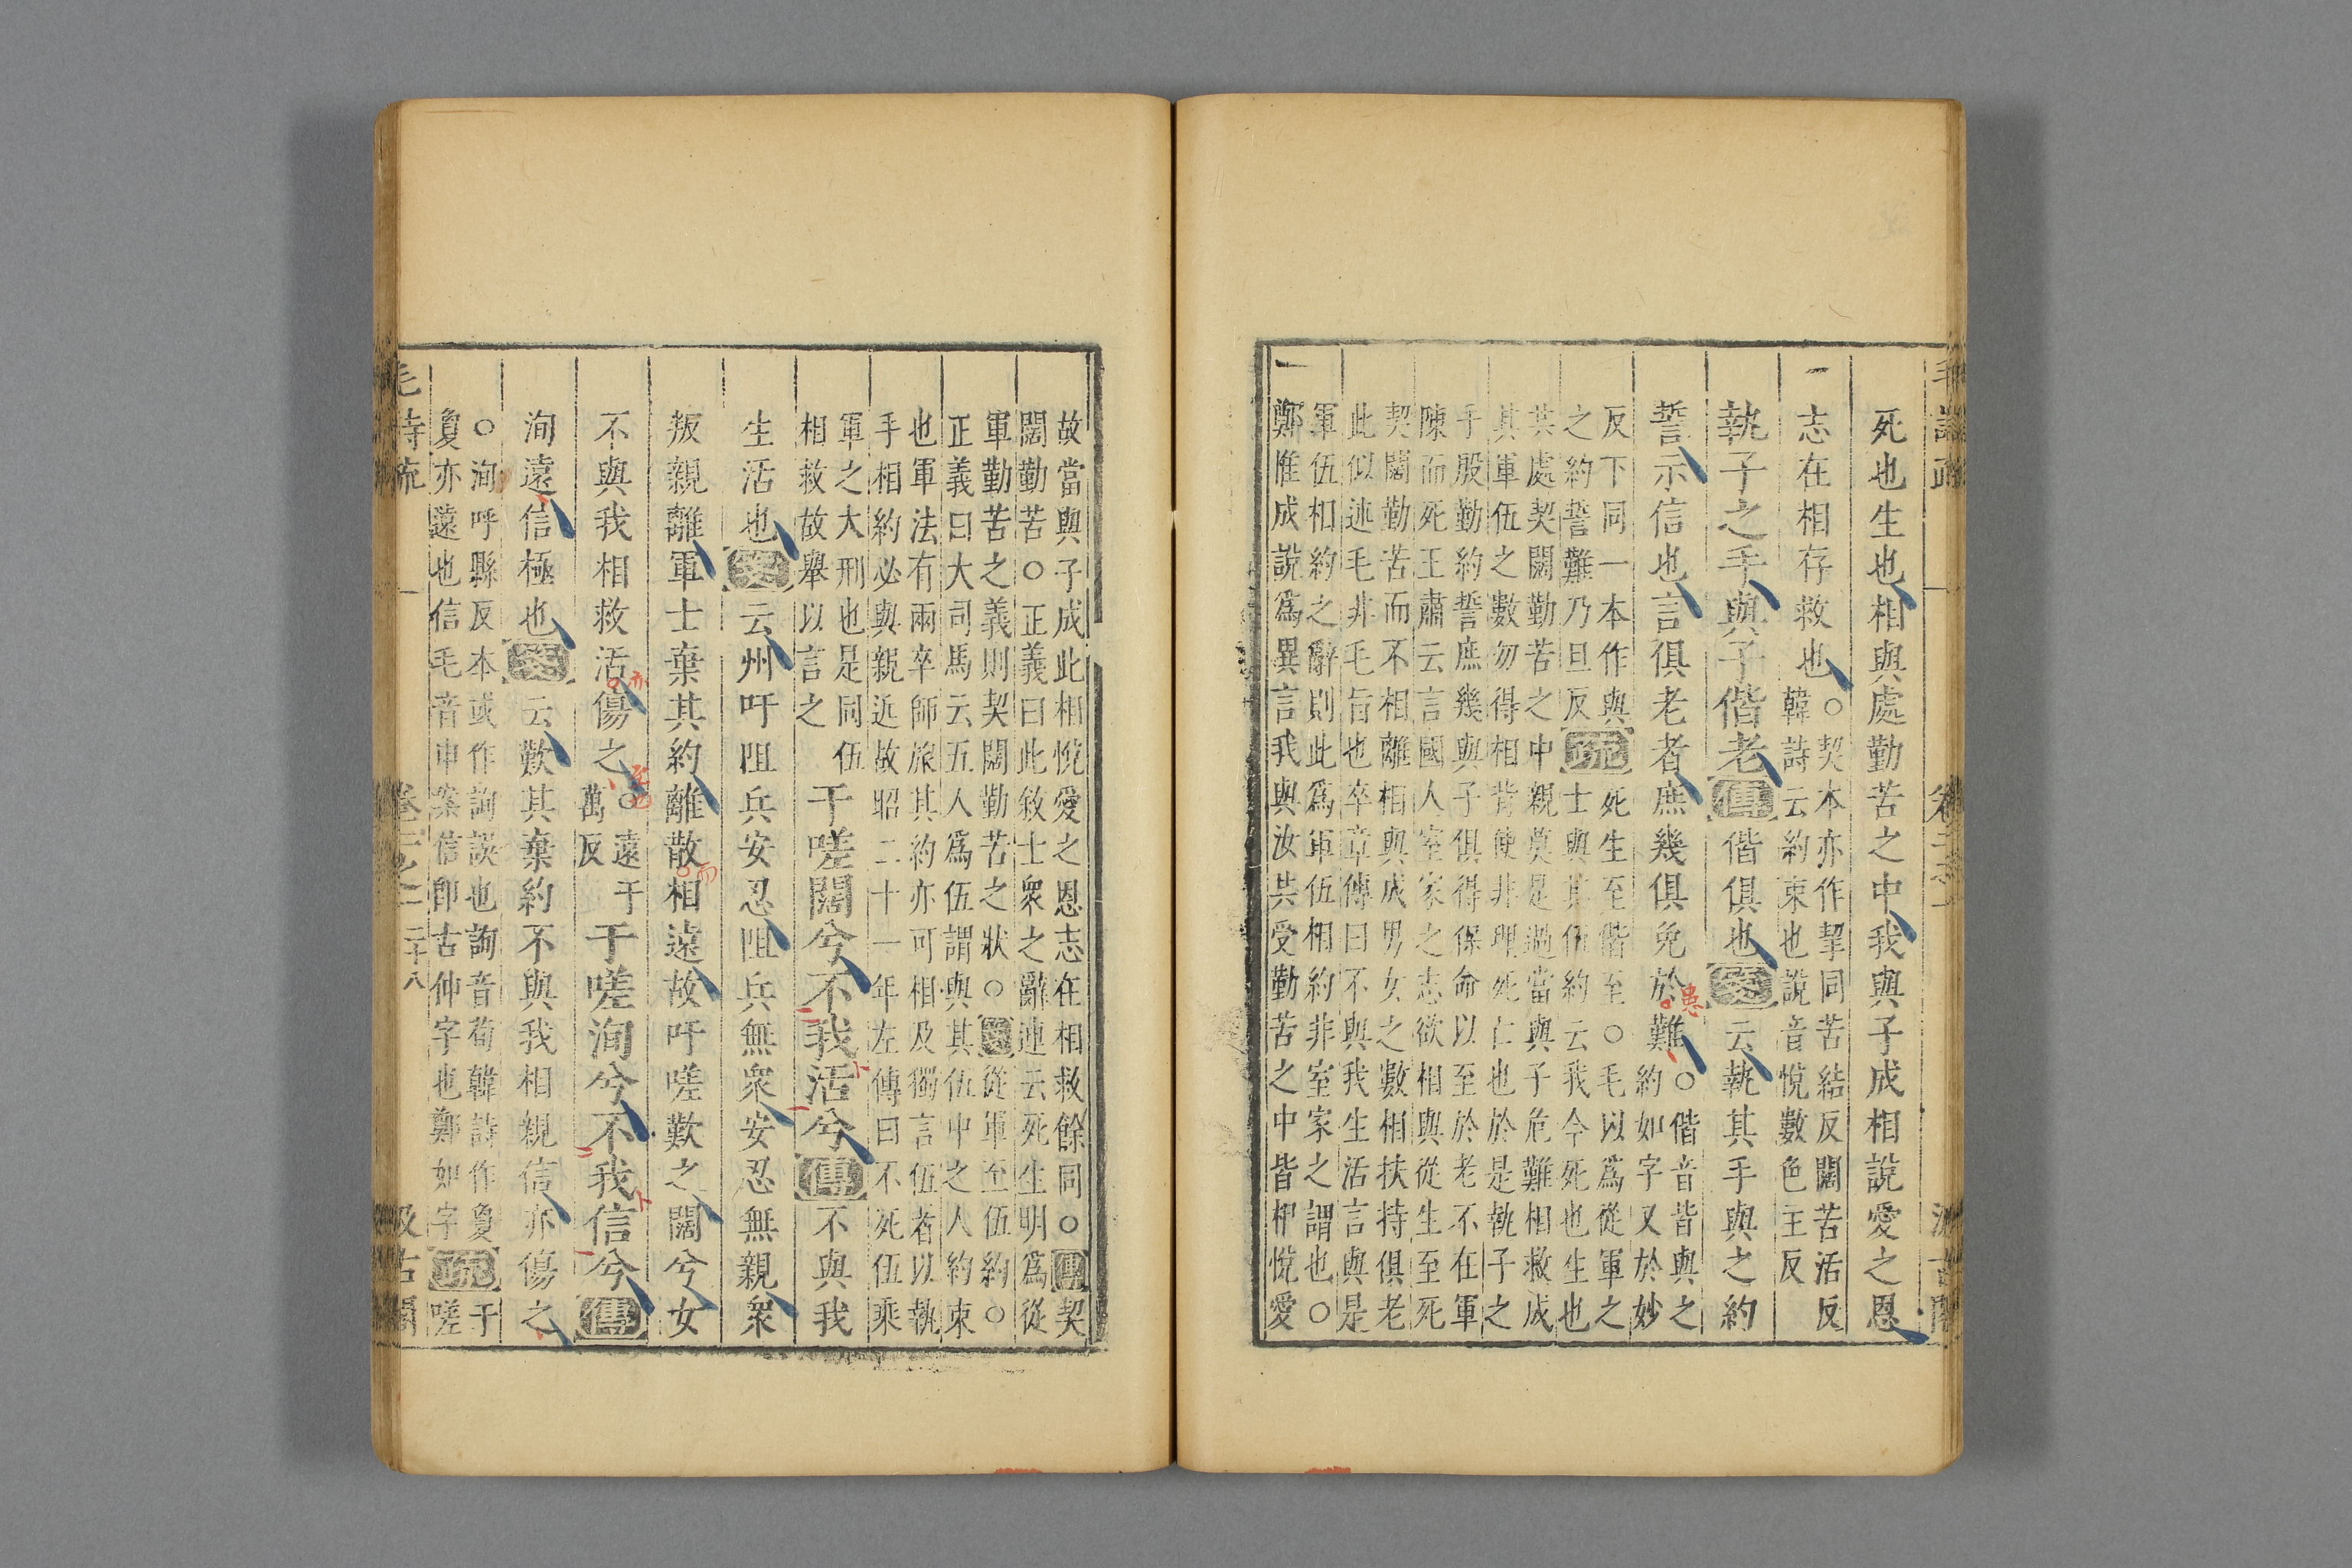 死也生也相與處勤苦之中我與子成相說愛之恩
志在相存救也○契本亦作挈同苦結反闊苦活反
韓詩云約束也說音悅數色主反
執子之手與子偕老傳偕俱也箋云執其手與之約
誓示信也言俱老者庶幾俱免於難○偕音皆與之
約如字又於妙
反下同一本作與死生至偕至○毛以爲從軍之
之約誓難乃旦反疏士與其伍約云我今死也生也
共處契闊勤苦之中親莫是過當與子危難相救成
其軍伍之數勿得相背使非理死亡也於是執子之
手殷勤約誓庶幾與子俱得保命以至於老不在軍
陳而死王肅云言國人室家之志欲相與從生至死
契闊勤苦而不相離相與成男女之數相扶持俱老
此似述毛非毛旨也卒章傳曰不與我生活言與是
軍伍相約之辭則此爲軍伍相約非室家之謂也○
鄭惟成說爲異言我與汝共受勤苦之中皆相悅愛
故當與子成此相悅愛之恩志在相救餘同○傳契
闊勤苦○正義曰此敘士衆之辭連云死生明爲從
軍勤苦之義則契闊勤苦之狀○箋從軍至伍約○
正義曰大司馬云五人爲伍謂與其伍中之人約束
也軍法有兩卒師旅其約亦可相及獨言伍者以執
手相約必與親近故昭二十一年左傳曰不死伍乘
軍之大刑也是同伍
相救故舉以言之
于嗟闊兮不我活兮傳不與我
生活也箋云州吁阻兵安忍阻兵無衆安忍無親衆
叛親離軍士棄其約離散相遠故吁嗟歎之闊兮女
不與我相救活傷之○遠于
萬反
于嗟洵兮不我信兮傳
洵遠信極也箋云歎其棄約不與我相親信亦傷之
○洵呼縣反本或作詢誤也詢音荀韓詩作敻
敻亦遠也信毛音申案信即古伸字也鄭如字疏于
嗟
毛詩疏
卷二之一
二十八
汲古閣